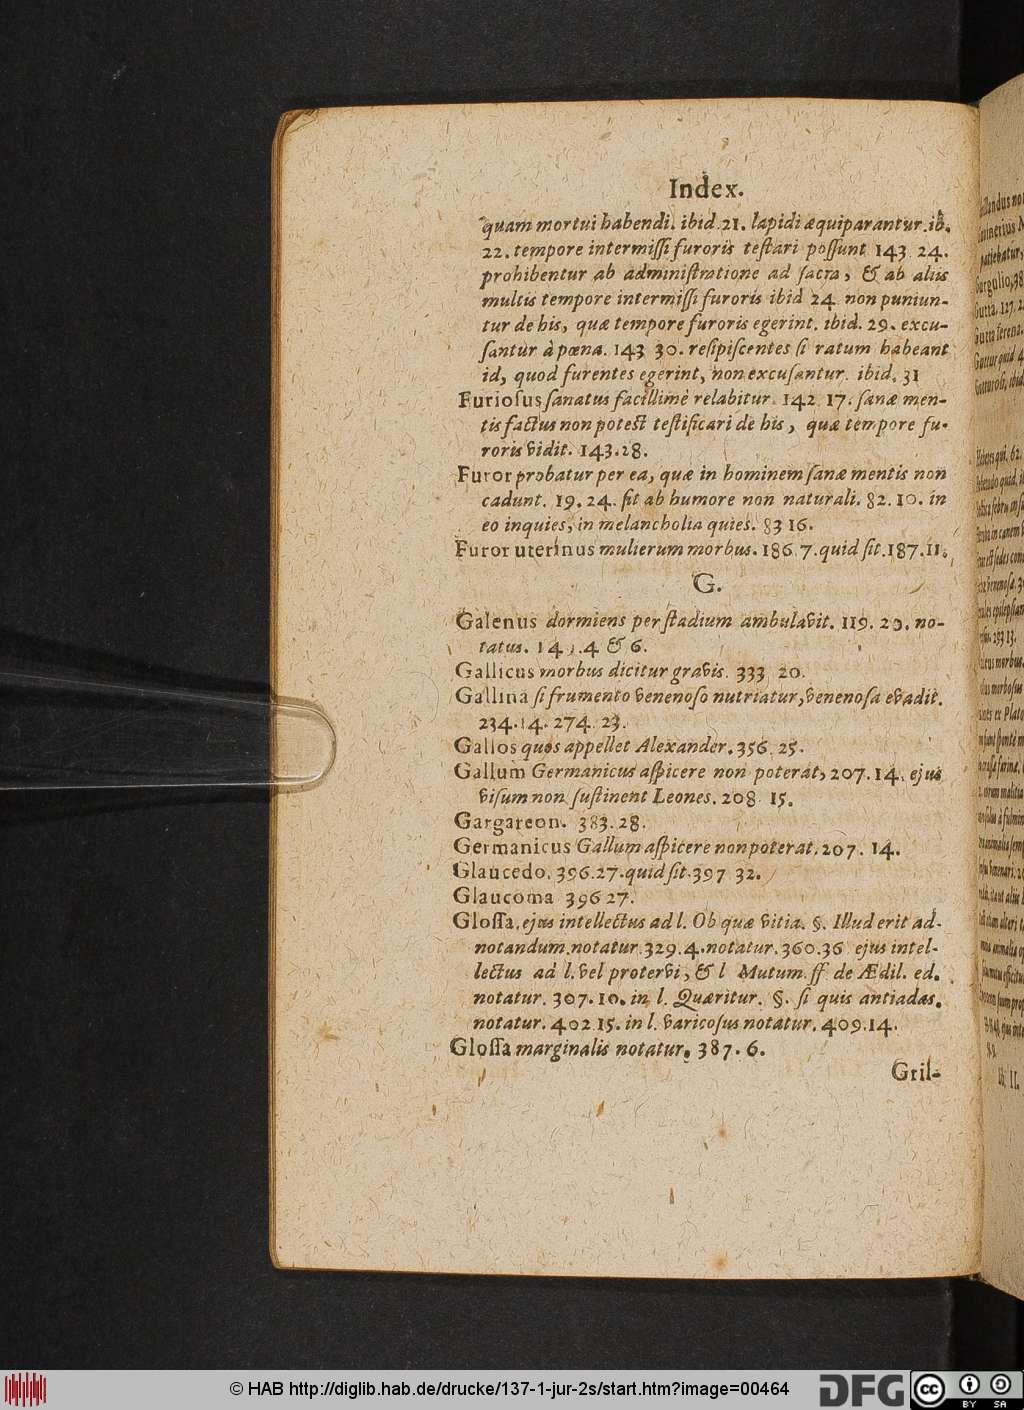 Index.
quam mortui habendi. ibid. 21. lapidi æquiparantur. ib.
22. tempore intermiſſi furoris teſtari poſſunt 143 24.
prohibentur ab adminiſtratione ad ſacra, & ab aliis
multis tempore intermiſſi furoris ibid 24 non puniun-
tur de his, quæ tempore furoris egerint. ibid. 29. excu-
ſantur à pœna. 143 30. reſipiſcentes ſi ratum habeant
id, quod furentes egerint, non excuſantur. ibid. 31
Furioſus ſanatus facillimè relabitur. 142 17. ſanæ men-
tis factus non poteſt teſtificari de his, quæ tempore fu-
roris vidit. 143. 28.
Furor probatur per ea, quæ in hominem ſanæ mentis non
cadunt. 19. 24. fit ab humore non naturali. 82. 10. in
eo inquies, in melancholia quies. 83 16.
Furor uterinus mulierum morbus. 186 7. quid ſit. 187. 11.
G.
Galenus dormiens per ſtadium ambulavit. 119. 20. no-
tatus. 4 & 6.
Gallicus morbus dicitur gravis. 333 20.
Gallina ſi frumento venenoſo nutriatur, venenoſa evadit.
234. 14. 274. 23.
Gallos quos appellet Alexander. 356. 25.
Gallum Germanicus aſpicere non poterat, 207. 14. ejus
viſum non ſuſtinent Leones. 208 15.
Gargareon. 383. 28.
Germanicus Gallum aſpicere non poterat. 207. 14.
Glaucedo. 396. 27. quid ſit. 397 32.
Glaucoma 396 27.
Gloſſa, ejus intellectus ad l. Ob quæ vitia. §. Illud erit ad-
notandum. notatur. 329. 4. notatur. 360. 36 ejus intel-
lectus ad l. vel protervi, & l Mutum. ff de Ædil. ed.
notatur. 307. 10. in l. Quæritur. §. ſi quis antiadas.
notatur. 402 15. in l. varicoſus notatur. 409. 14.
Gloſſa marginalis notatur. 387. 6.
Gril-
© HAB http://diglib.hab.de/drucke/137-1-jur-2s/start.htm?image=00464
DFG
cc BY SA